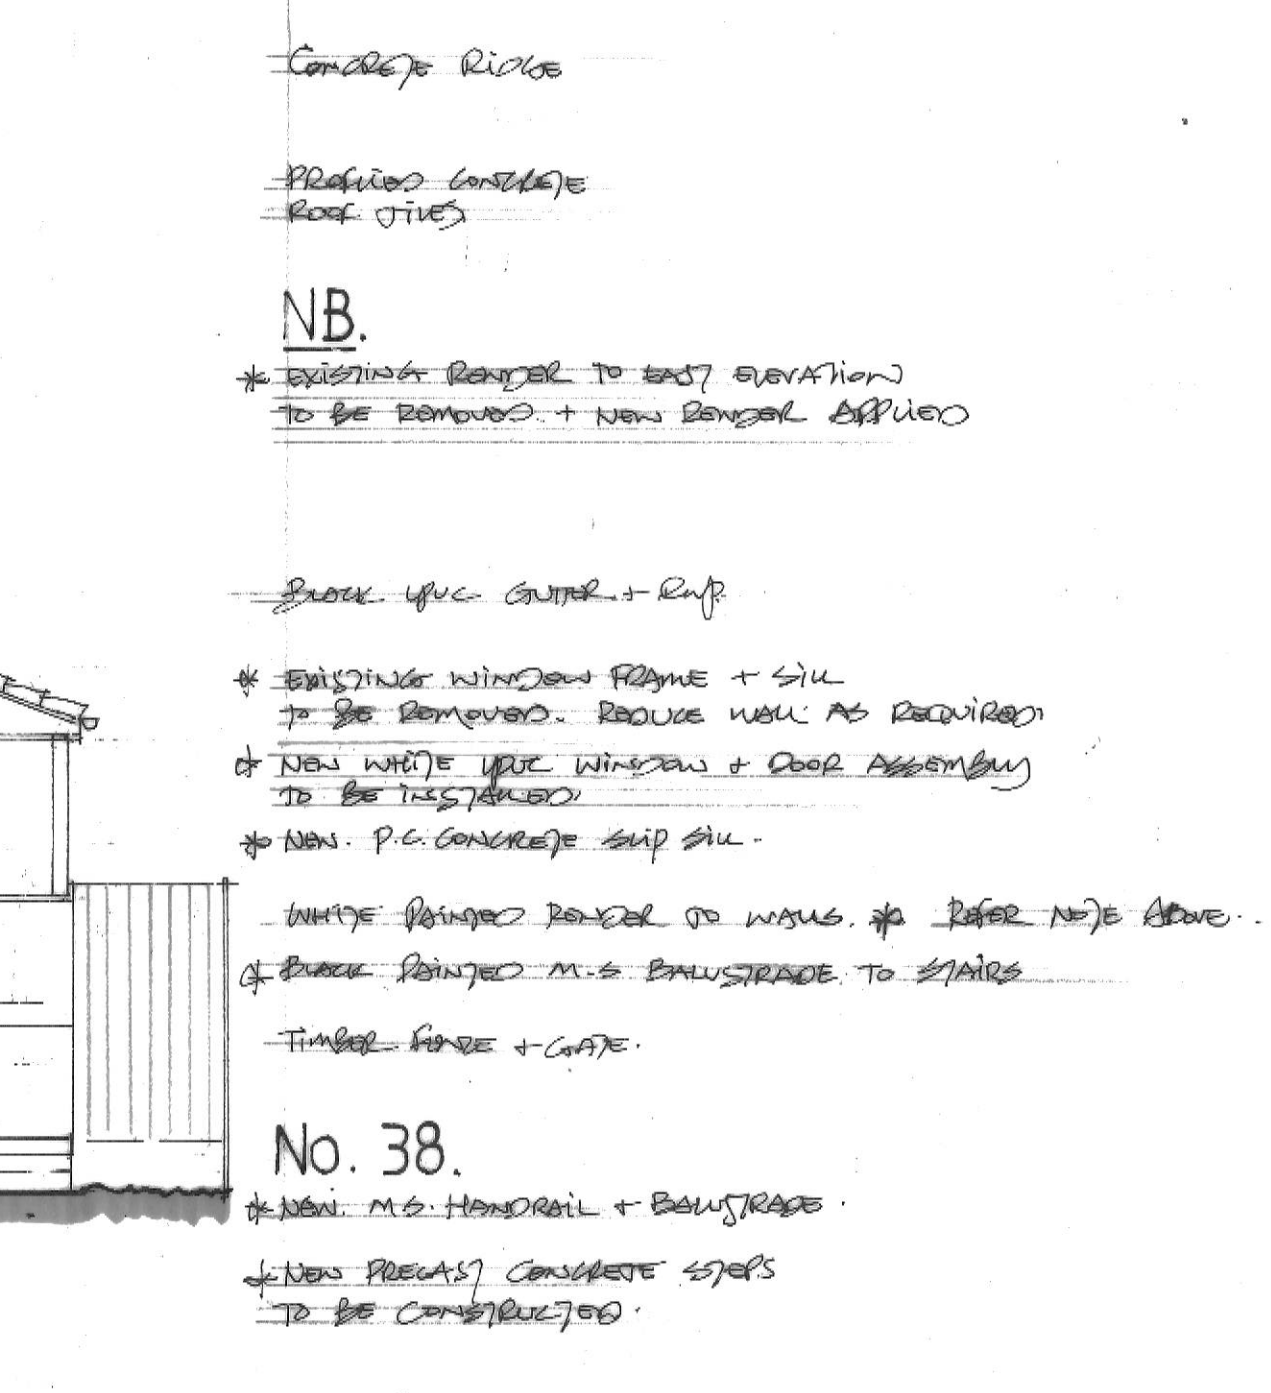 CONCRETE RIDGE
PROFILED CONCRETE
ROOF TILES
NB.
* EXISTING RENDER TO EAST ELEVATION
TO BE REMOVED + NEW RENDER APPLIED
BLACK UPVC GUTTER + RWP.
* EXISTING WINDOW FRAME + SILL
TO BE REMOVED. REDUCE WALL AS REQUIRED
* NEW WHITE UPVC WINDOW + DOOR ASSEMBLY
TO BE INSTALLED
* NEW. P.C. CONCRETE SLIP SILL.
WHITE PAINTED RENDER TO WALLS. * REFER NOTE ABOVE.
* BLACK PAINTED M.S BALUSTRADE TO STAIRS
TIMBER FENCE + GATE.
No. 38.
* NEW. M.S. HANDRAIL + BALUSTRADE.
* NEW PRECAST CONCRETE STEPS
TO BE CONSTRUCTED.